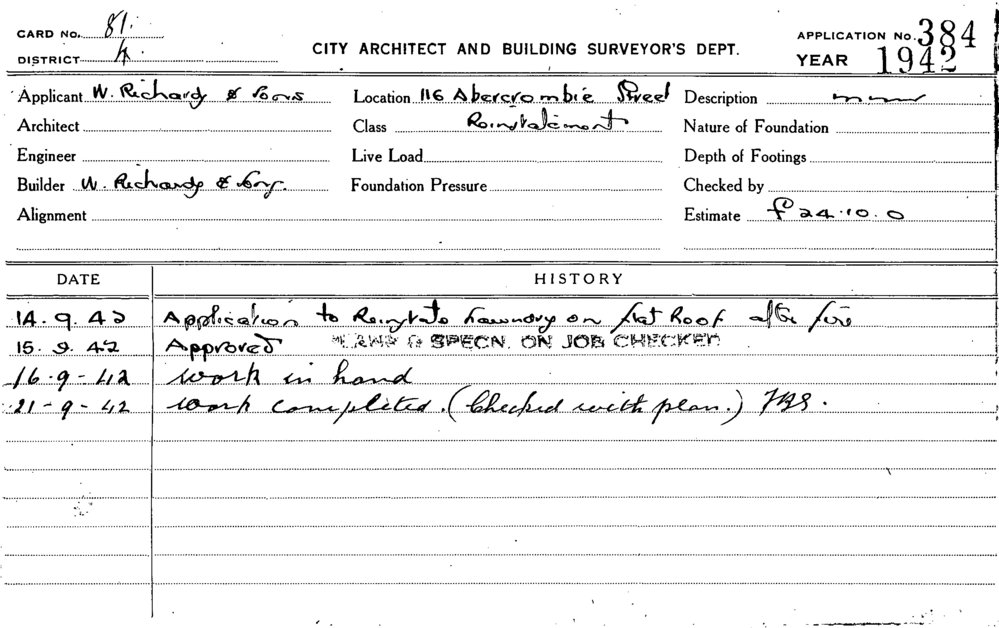 CARD No. 81.
DISTRICT 4.
CITY ARCHITECT AND BUILDING SURVEYOR'S DEPT.
APPLICATION No. 384
YEAR 1942
Applicant W. Richards & Sons Location 116 Abercrombie Street Description
Architect Class Reinstatement Nature of Foundation
Engineer Live Load Depth of Footings
Builder W. Richards & Sons. Foundation Pressure Checked by
Alignment Estimate £24.10.0
DATE HISTORY
14.9.42 Application to Reinstate Laundry on flat Roof after fire
15.9.42 Approved PLANS & SPECN. ON JOB CHECKED
16-9-42 work in hand
21-9-42 work completed. (Checked with plan.)